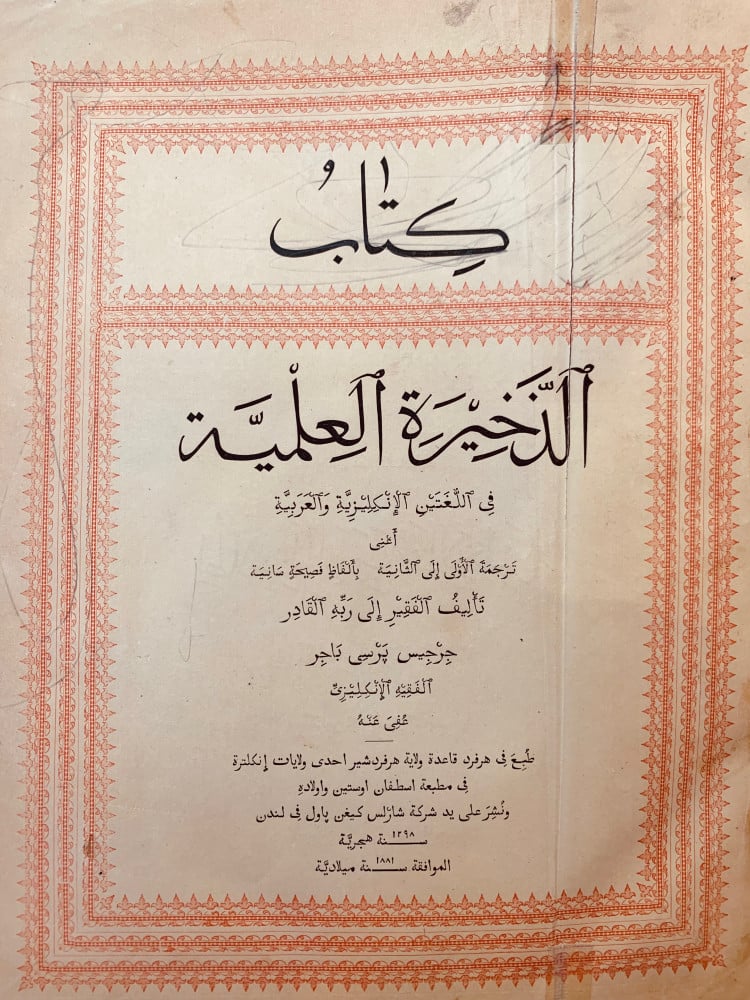 كِتَابُ
اَلذَّخِيْرَةِ اَلْعِلْمِيَّة
فِي اَللُّغَتَيْنِ اَلْإِنْكِلِيْزِيَّةِ وَاَلْعَرَبِيَّةِ
أَعْنِي
تَرْجَمَةَ اَلْأُوْلَى إِلَى اَلثَّانِيَة بِأَلْفَاظٍ فَصِيحَةٍ سَانِيَة
تَأْلِيفُ اَلْفَقِيْرِ إِلَى رَبِّهِ اَلْقَادِر
جِرْجِيس پَرْسِي بَاجِر
اَلْفَقِيْه اَلْإِنْكِلِيْزِيّ
عُفِيَ عَنْهُ
طُبِعَ في هرفرد قاعدة ولاية هرفردشير احدى ولايات إنكلترة
في مطبعة اسطفان اوستين واولاده
ونُشِرَ على يد شركة شارلس كيغن پاول في لندن
سنة ١٢٩٨ هجريَّة
الموافقة سنة ١٨٨١ ميلاديَّة